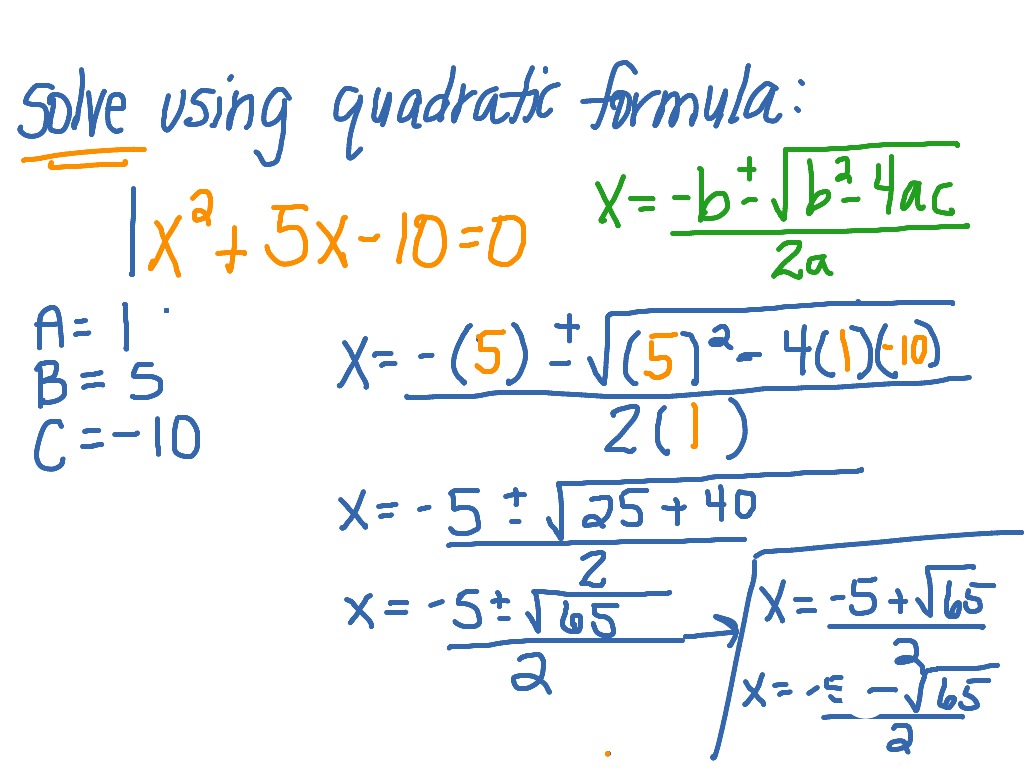 Solve using quadratic formula:
x = (-b ± √(b² - 4ac)) / 2a
1x² + 5x - 10 = 0
A = 1
B = 5
C = -10
x = (-(5) ± √((5)² - 4(1)(-10))) / 2(1)
x = (-5 ± √(25 + 40)) / 2
x = (-5 ± √65) / 2 →
x = (-5 + √65) / 2
x = (-5 - √65) / 2